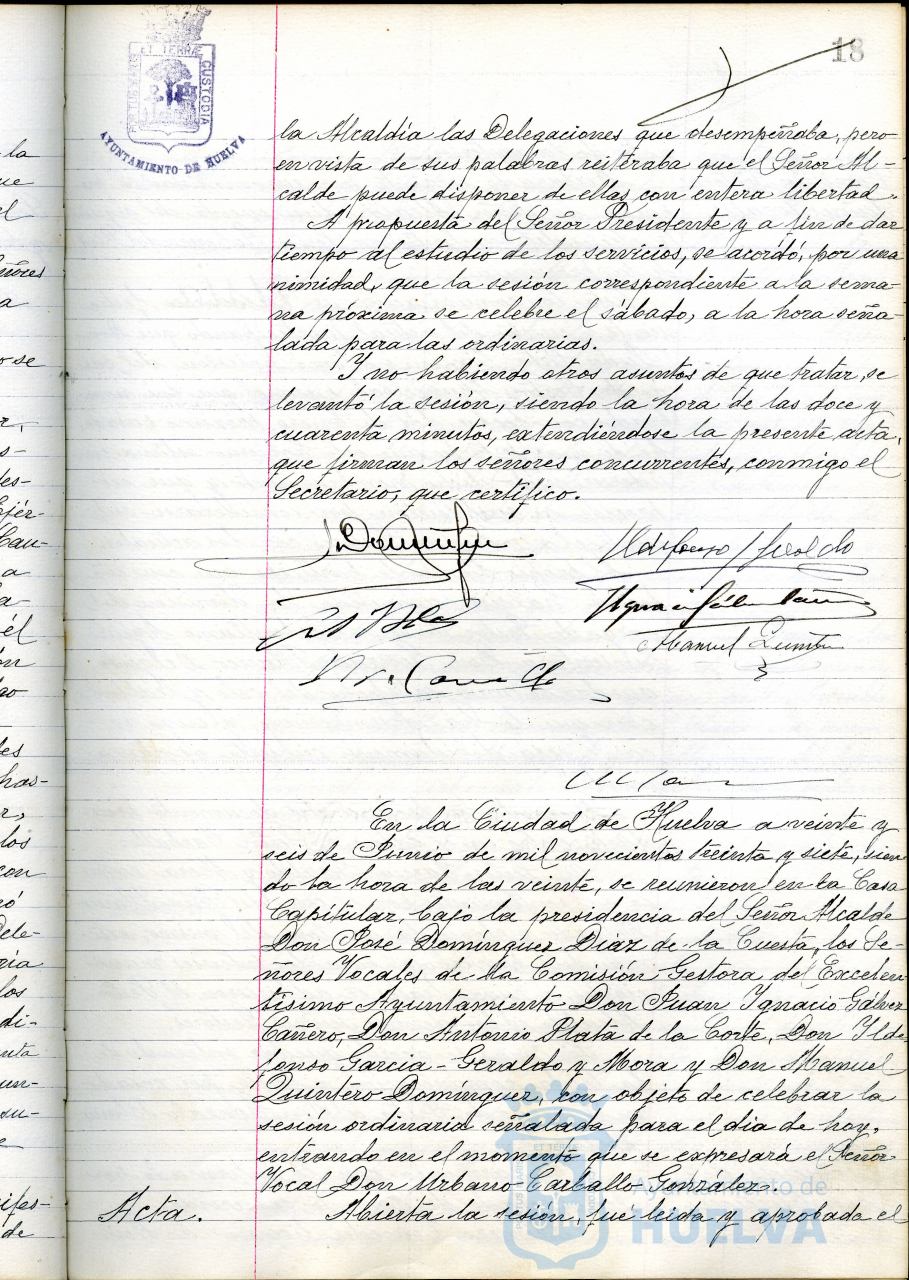 18
ET TERRÆ
CUSTODIA
AYUNTAMIENTO DE HUELVA
la Alcaldía las Delegaciones que desempeñaba, pero
en vista de sus palabras reiteraba que el Señor Al-
calde puede disponer de ellas con entera libertad.
A propuesta del Señor Presidente y a fin de dar
tiempo al estudio de los servicios, se acordó, por una
nimidad, que la sesión correspondiente a la sema-
na próxima se celebre el sábado, a la hora seña-
lada para las ordinarias.
Y no habiendo otros asuntos de que tratar, se
levantó la sesión, siendo la hora de las doce y
cuarenta minutos, extendiéndose la presente acta,
que firman los señores concurrentes, conmigo el
Secretario, que certifico.
Manuel
En la Ciudad de Huelva a veinte y
seis de Junio de mil novecientos treinta y siete, sien
do la hora de las veinte, se reunieron en la Casa
Capitular, bajo la presidencia del Señor Alcalde
Don José Domínguez Diaz de la Cuesta, los Se-
ñores Vocales de la Comisión Gestora del Excelen
tísimo Ayuntamiento Don Juan Ignacio Gálvez
Cañero, Don Antonio Plata de la Corte, Don Ilde
fonso Garcia-Geraldo y Mora y Don Manuel
Quintero Domínguez, con objeto de celebrar la
sesión ordinaria señalada para el dia de hoy,
entrando en el momento que se expresará el Señor
Vocal Don Urbano Carballo González.
Acta. Abierta la sesión, fué leida y aprobada el
Ayuntamiento de
HUELVA